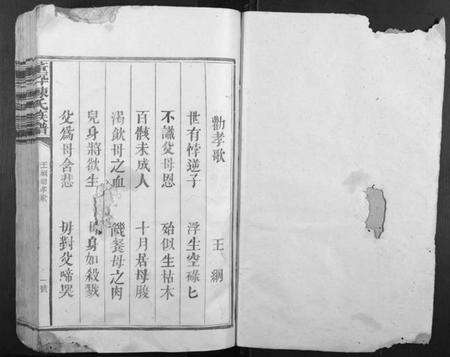 勸孝歌 王綱
世有悖逆子 浮生空碌匕
不識父母恩 殆似生枯木
百骸未成人 十月居母腹
渴飲母之血 饑餐母之肉
兒身將欲生 身如殺戮
父爲母含悲 母對父啼哭
陳氏族譜
王綱勸孝歌
號